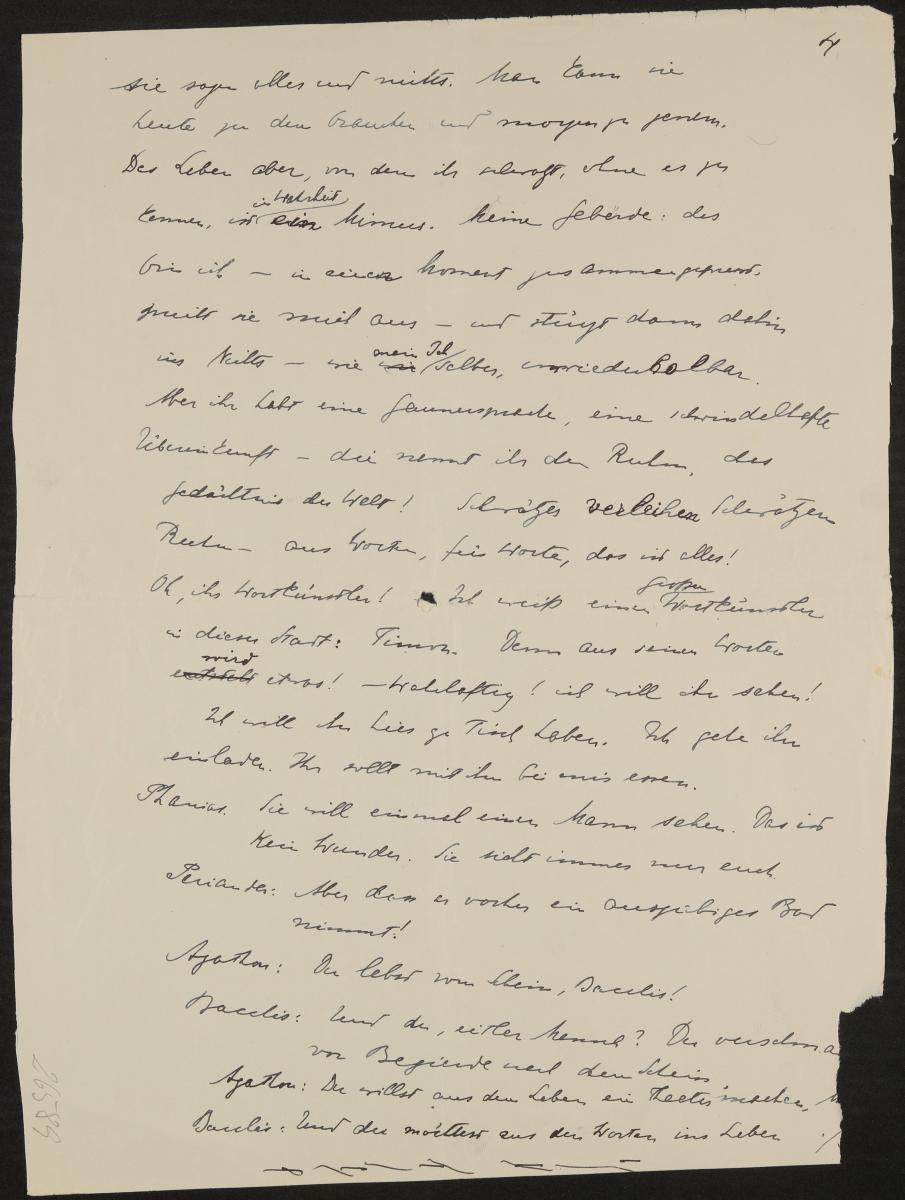 4
sie sagen alles und nichts. Man kann sie
heute zu dem brauchen und morgen zu jenem.
Das Leben aber, von dem ihr schwatzt, ohne es zu
in Wahrheit
kennen, ist ein Mimus. Meine Gebärde: das
bin ich – in einen Moment zusammengepresst,
sie mich aus – und stürzt dann dahin
mein Ich
ins Nichts – wie selber, unwiederholbar.
Aber ihr habt eine Gaunersprache, eine schwindelhafte
Übereinkunft – die nennt ihr den Ruhm, das
Gedächtnis der Welt! Schwätzer verleihen Schwätzern
Ruhm – aus Worten, für Worte, das ist alles!
großen
Oh, ihr Wortkünstler! Ich weiß einen Wortkünstler
in dieser Stadt: Timon. Denn aus seinen Worten
wird
entsteht etwas! – Wahrhaftig! ich will ihn sehen!
Ich will ihn hier zu Tisch haben. Ich gehe ihn
einladen. Ihr sollt mit ihm bei mir essen.
Phanias. Sie will einmal einen Mann sehen. Das ist
kein Wunder. Sie sieht immer nur euch.
Periander: Aber dass er vorher ein ausgiebiges Bad
nimmt!
Agathon: Du lebst vom Schein, Bacchis!
Bacchis: Und du, eitler Mensch? Du
vor Begierde nach dem Schein
Agathon: Du willst aus dem Leben ein Theater machen,
Bacchis: Und du möchtest aus den Worten ins Leben
265-89